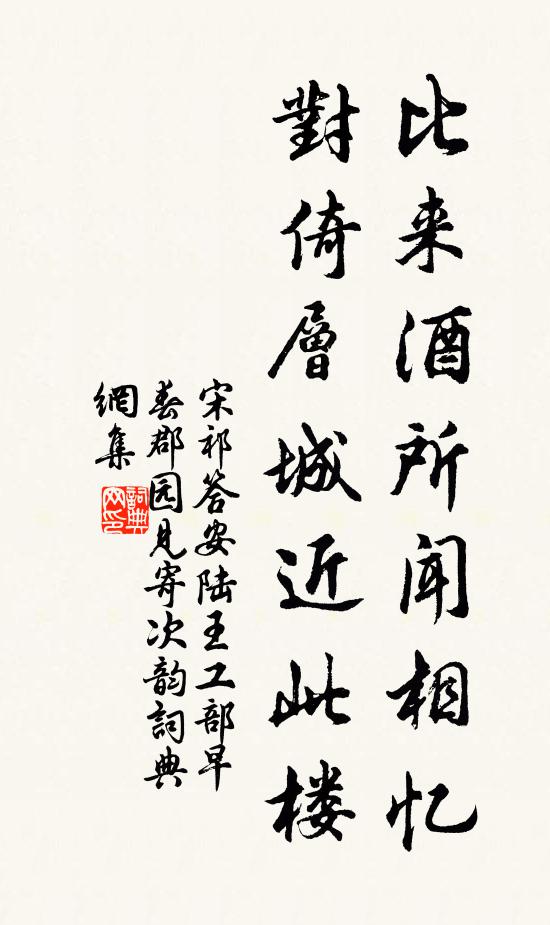 比来酒所闻相忆
對倚層城近此楼
宋祁答安陆王工部早
春郡园见寄次韵詞典
網集
詞典
网印